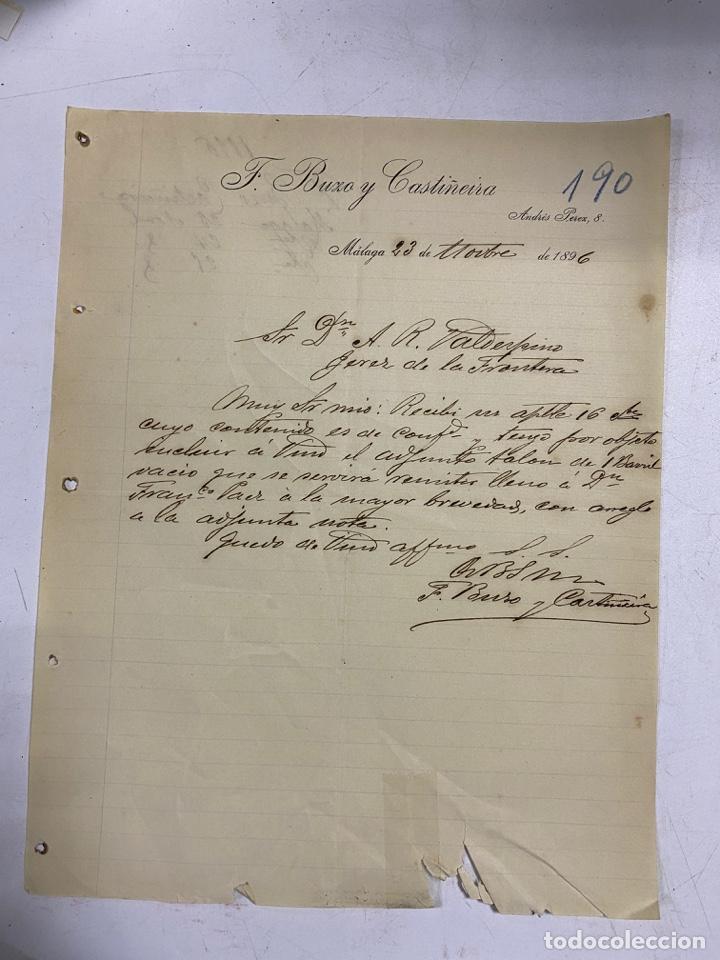 F. Buxo y Castiñeira
190
Andrés Perez, 8.
Málaga 23 de de 1896
Sr Dn A. R. Valdespino
Jerez de la Frontera
Muy Sr mio: Recibi su aptle 16
cuyo contenido es de confd. y tengo por objeto
incluir á Vmd el adjunto talon de 1 Barril
vacio que se servirá remitir lleno á Dn
Franco. Paez á la mayor brevedad, con arreglo
a la adjunta nota.
Quedo de Vmd affmo S. S.
QBSM
F. Buxo y Castiñeira
todocoleccion
todocoleccion.net